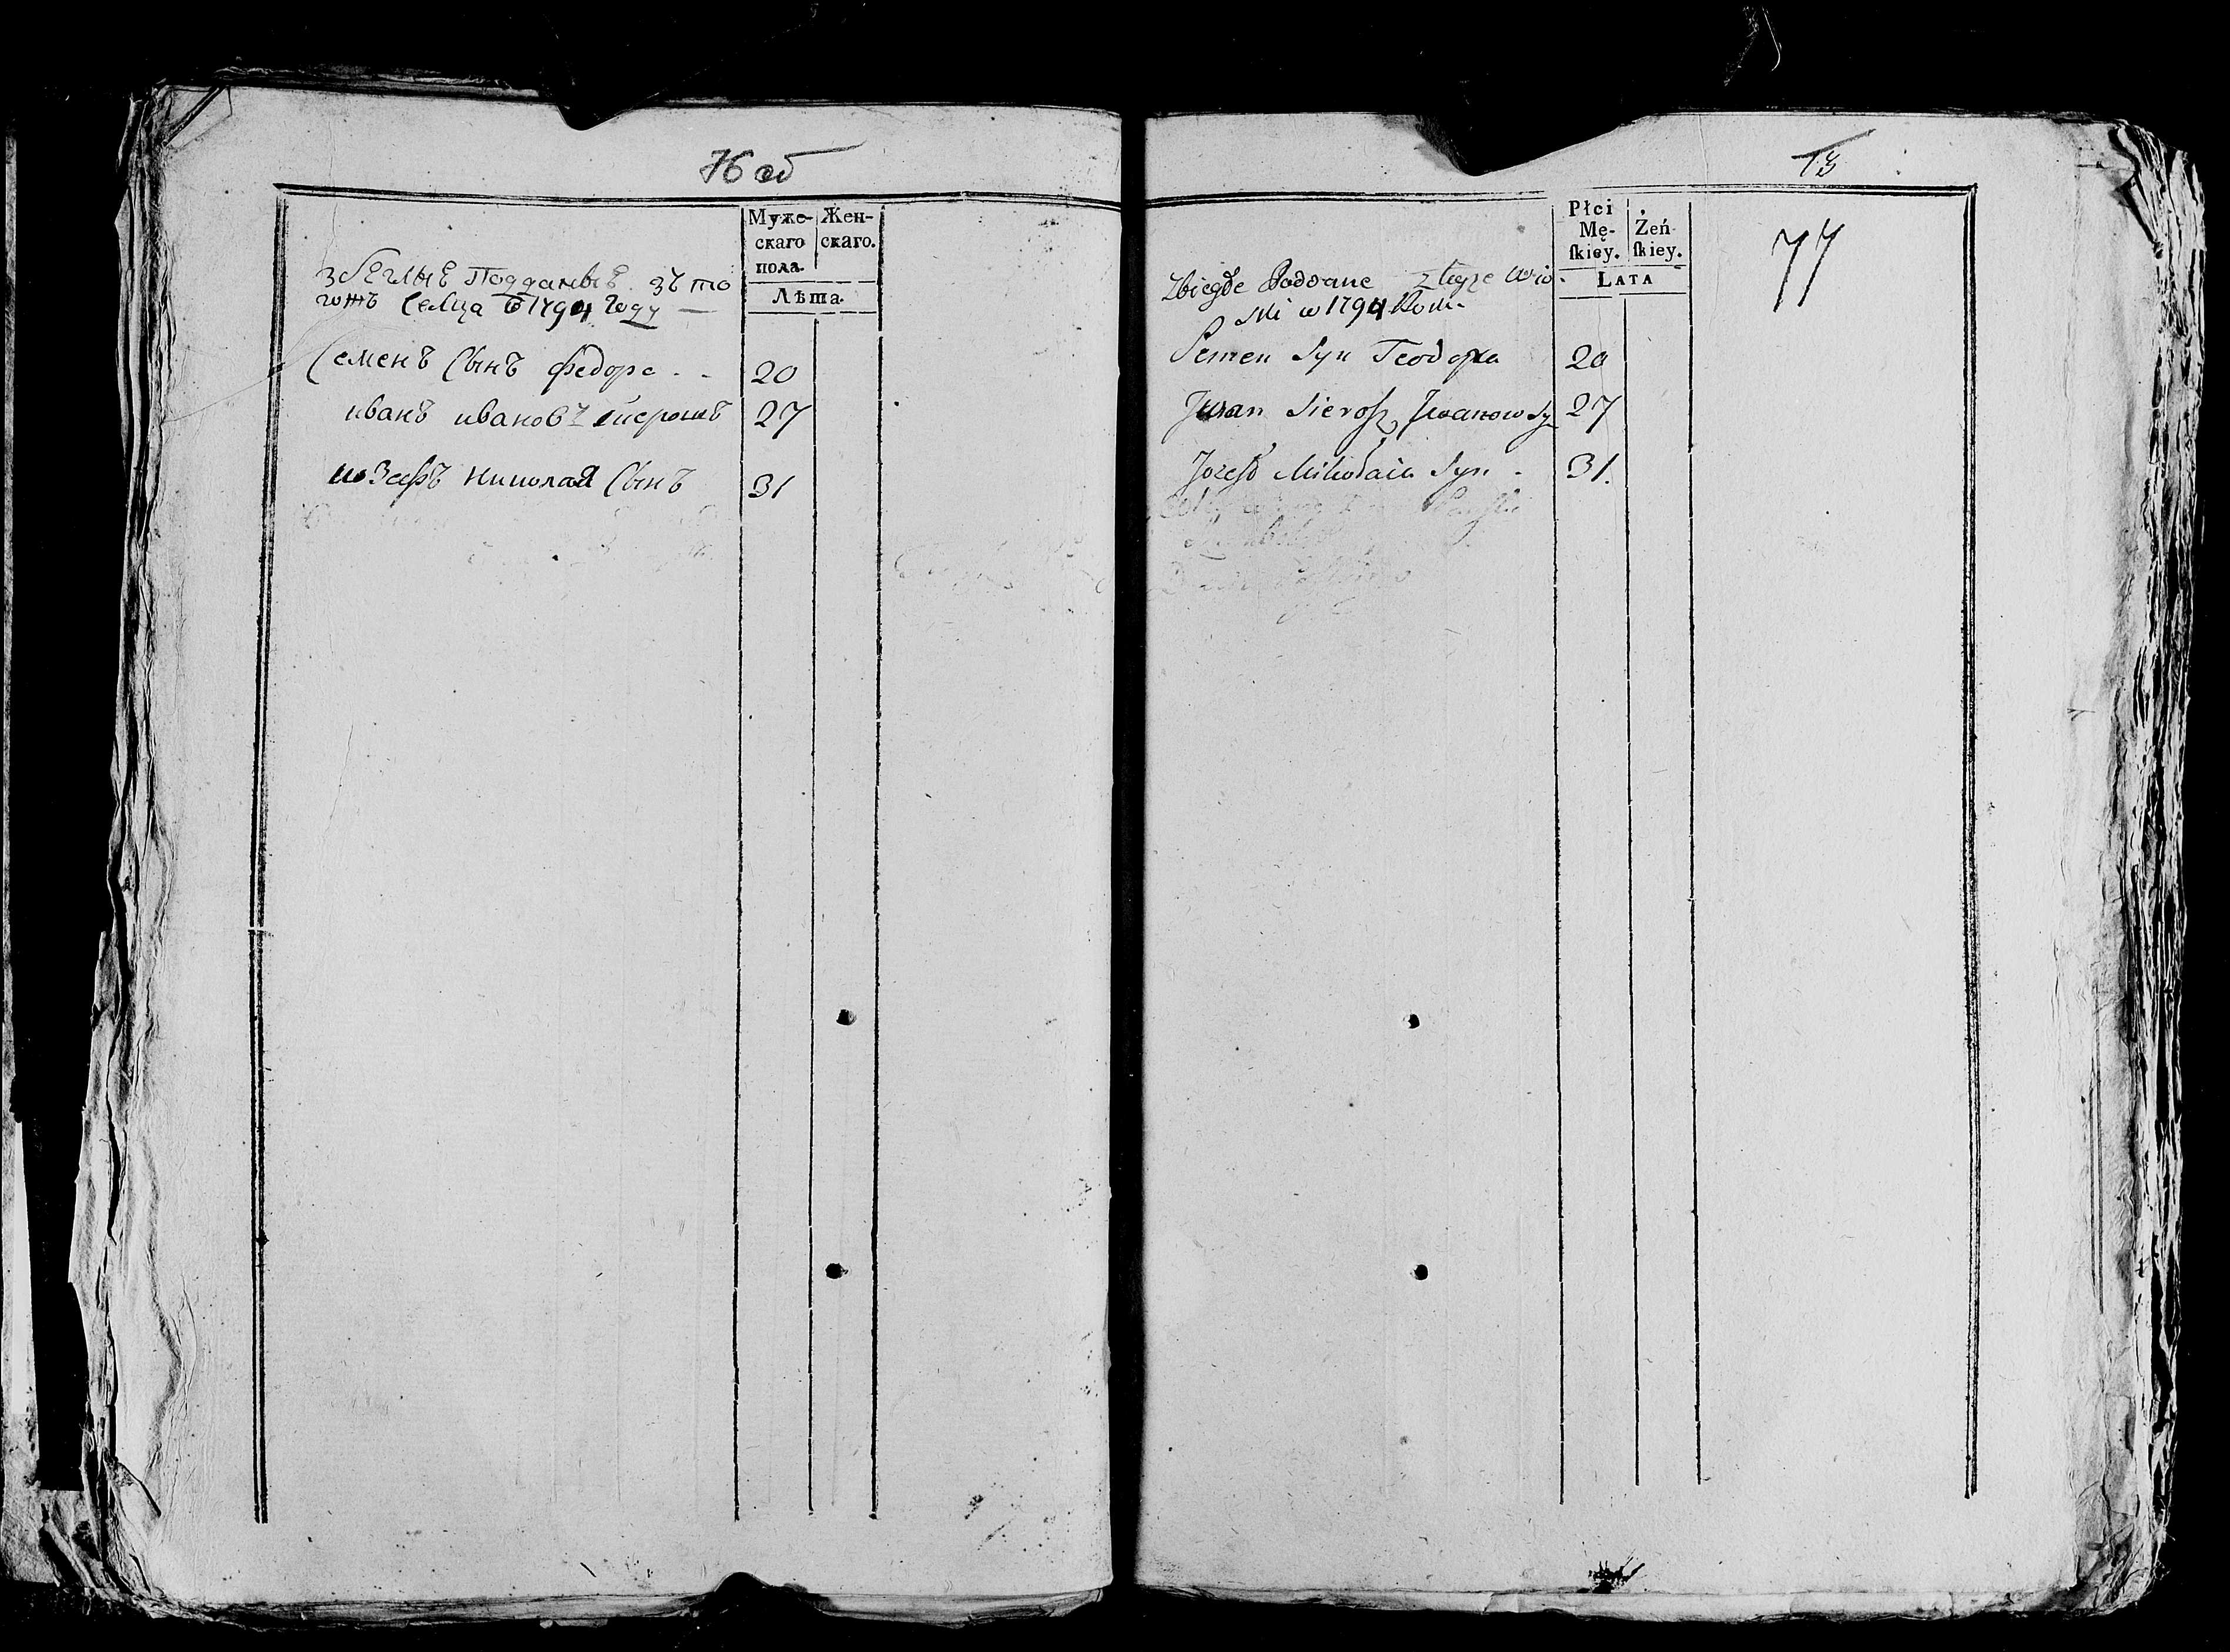 76 об
Муже- Жен-
скаго скаго.
пола.
Лѣта.
збеглые Подданые зъ то
гожъ Селца в 1794 году —
Семенъ Сынъ Федора - - 20
иванъ ивановъ шерошъ 27
иозефъ николая Сынъ 31
13
77
Płci Żeń-
Mę- ſkiey.
ſkiey.
LATA
Zbiegłe Poddane z teyże Wio-
ski w 1794 Roku
Semen Syn Teodora 20
Jwan Sierosz Jwanow Sy 27
Jozef Mikołaia Syn - 31.